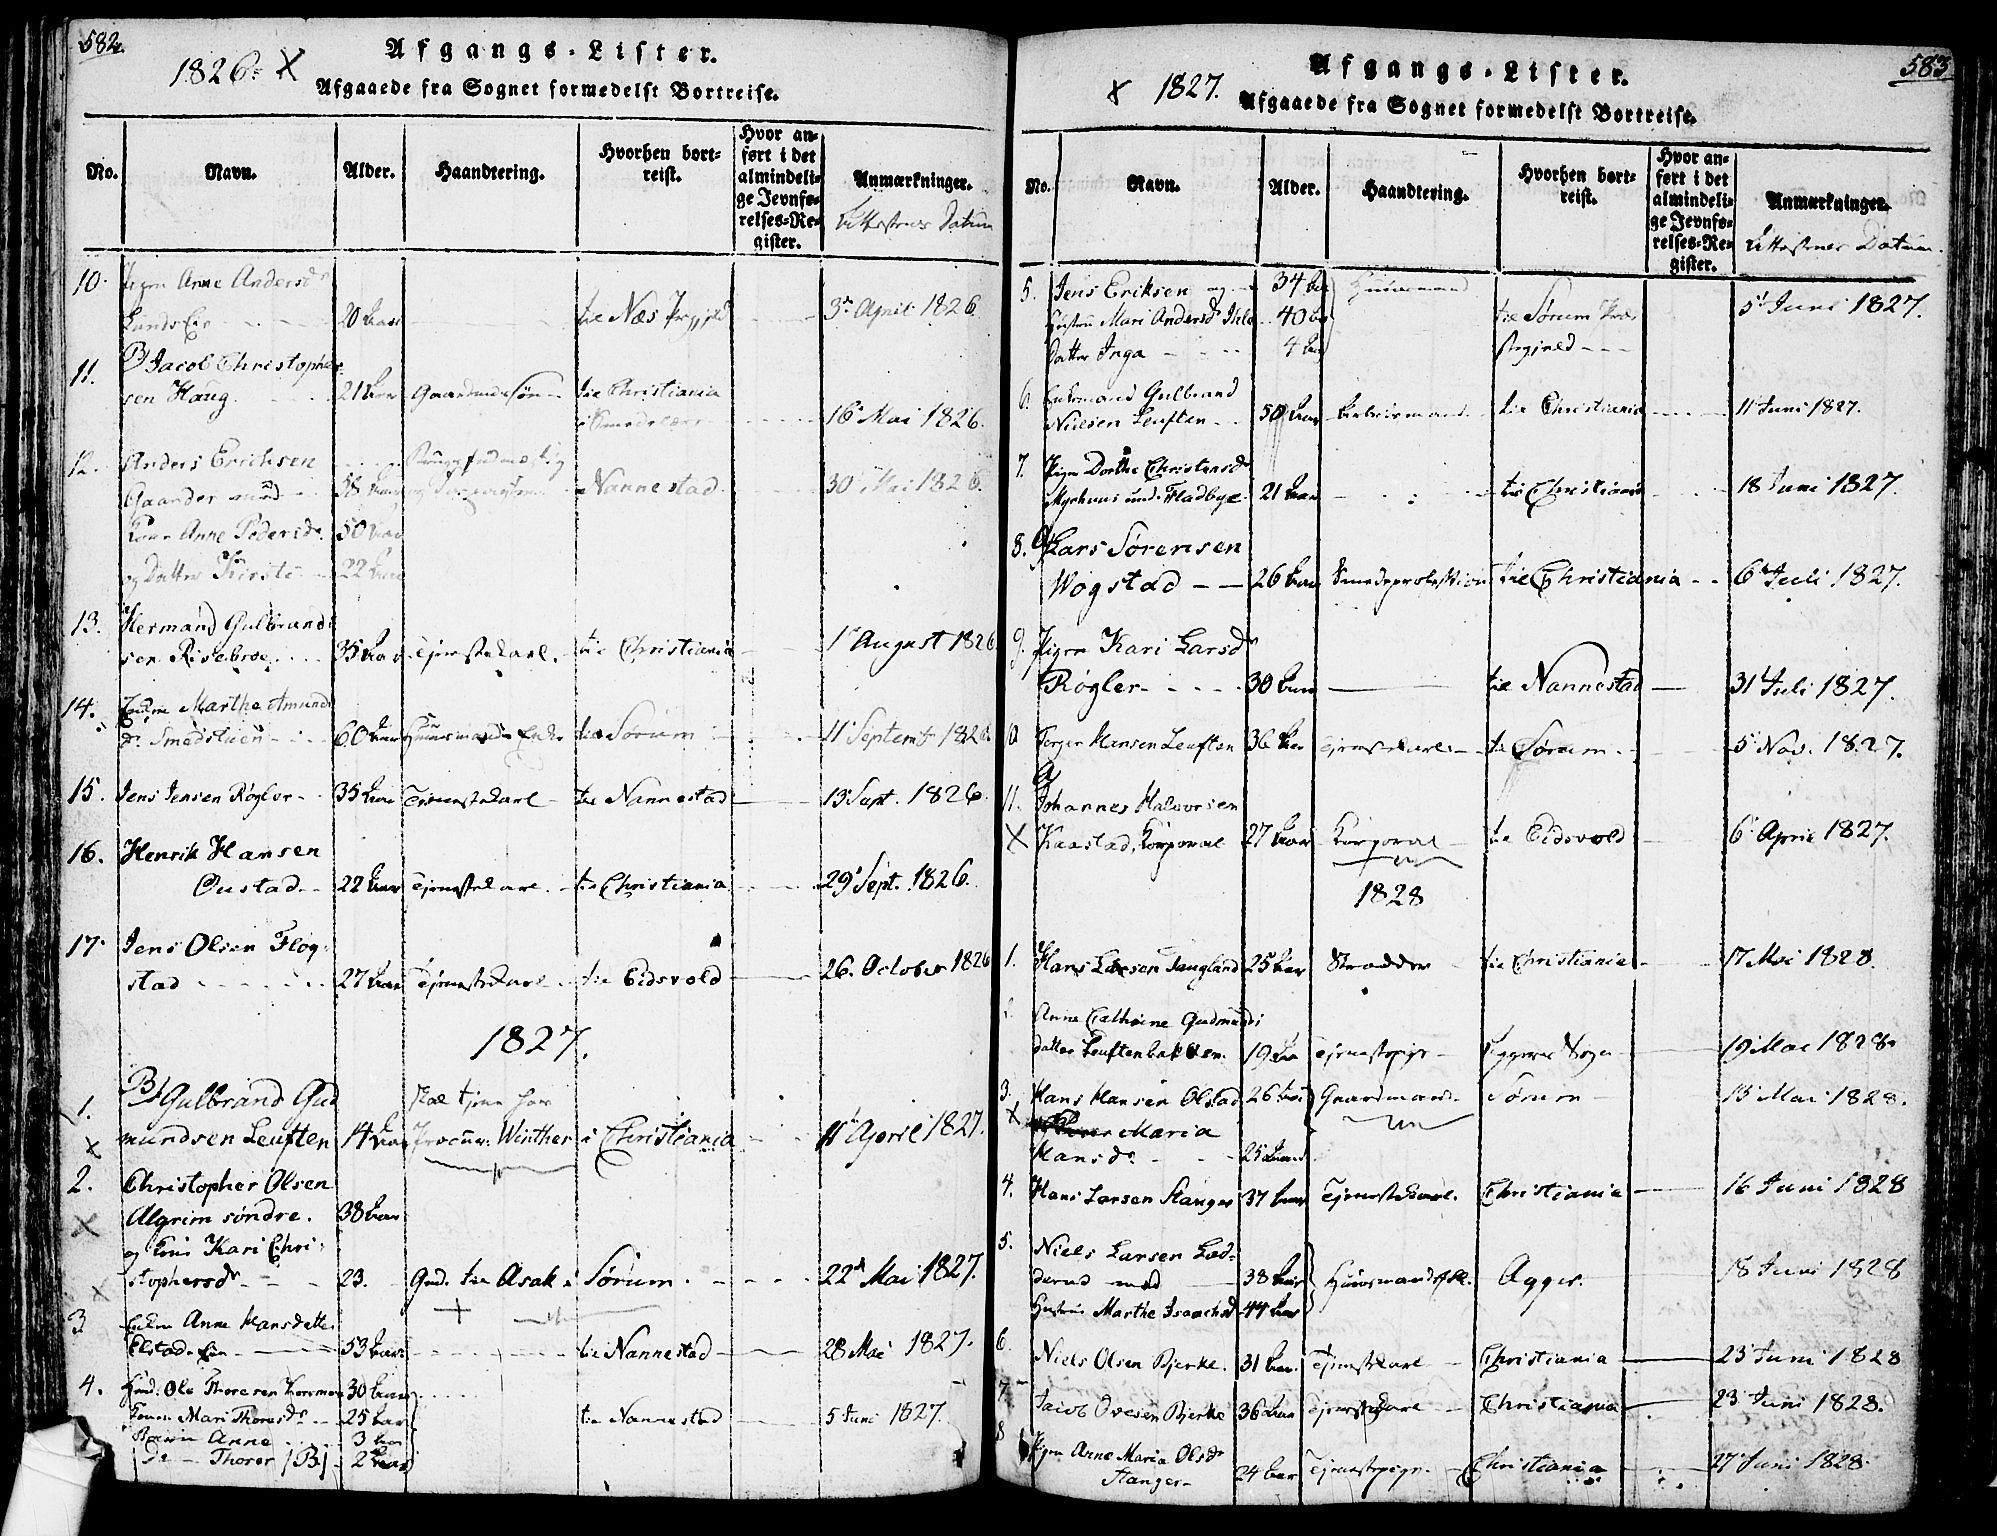 582.
1826. X
Afgangs-Lister.
Afgaaede fra Sognet formedelst Bortreise.
No. Navn. Alder. Haandtering. Hvorhen bort-reist. Hvor an-ført i det almindeli-ge Jevnfø-relses-Re-gister. Anmærkninger.
Attestens Datum
10. Pigen Anne Andersdr
20 Aar til Næs Prgjeld 3 April 1826
11. B) Jacob Christopher-
sen Haug 21 Aar Gaardmandssøn til Christiania
16 Mai 1826.
12. Anders Erichsen
Gaarder med 58 Aar Nannestad 30 Mai 1826.
Kone Anne Pedersdr 50 Aar
og Datter Kirsti 22 Aar
13. Hermand Gulbrand-
sen Risebroe 35 Aar Tjenestekarl. til Christiania 1 August 1826
14. Enken Marthe Amunds
dr. Smedstuen 60 Aar Huusmands Enke til Sørum 11 Septemb 1826.
15. Jens Jensen Røgler 35 Aar Tjenestekarl til Nannestad 13 Sept. 1826.
16. Henrik Hansen
Oustad 22 Aar Tjenestekarl. til Christiania 29 Sept. 1826.
17. Jens Olsen Flog-
stad 27 Aar Tjenestekarl til Eidsvold 26. October 1826
1827.
1. B) Gulbrand Gud Skal tjene hos
X mundsen Leuften 14 Aar Procur: Winther i Christiania 11 April 1827.
2. Christopher Olsen
X Algrim søndre. 38 Aar
og Kone Kari Chri-
X stophersdr 23. Grd. til Asak i Sørum. 22 Mai 1827.
3 Enken Anne Hansdatter
Elstad Eie 53 Aar til Nannestad 28 Mai 1827.
4. Huusmd: Ole Thoresen 30 Aar
Konen Mari Thoresdr 25 Aar til Nannestad 5 Juni 1827.
Børn Anne 3 Aar
Do Thorer /B/ 2 Aar
583
X 1827.
Afgangs-Lister.
Afgaaede fra Sognet formedelst Bortreise.
No. Navn. Alder. Haandtering. Hvorhen bort-reist. Hvor an-ført i det almindeli-ge Jevnfø-relses-Re-gister. Anmærkninger.
Attestens Datum.
5. Jens Eriksen og 34 Aar Huusmand
Hustru Mari Andersdr 40 Aar til Sørum Præ- 5 Juni 1827.
Datter Inga 4 Aar stegjeld
6. Enkemand Gulbrand
Nielsen Leuften 50 Aar til Christiania 11 Juni 1827.
7. Pigen Dorthe Christensdr
Myrhuus und. Fladbye 21 Aar til Christiania 18 Juni 1827.
8. Lars Sørensen
Wogstad 26 Aar Smedeprofession til Christiania 6 Juli 1827.
9. Pigen Kari Larsdr
Røgler 30 Aar til Nannestad 31 Juli 1827.
10 Jørgen Hansen Leuften 36 Aar Tjenestekarl til Sørum. 5 Nov. 1827.
11. Johannes Halvorsen
X Kaastad, Korporal 27 Aar Korporal til Eidsvold 6 April 1827.
1828
1. Hans Larsen Tangland 25 Aar Skrædder til Christiania 17 Mai 1828.
2. Anne Cathrine Gudmunds
datter Leuftenbakken. 19 Aar Tjenestepige Aggers Sogn 19 Mai 1828.
3. Hans Hansen Olstad 26 Aar Gaardmand Sørum 13 Mai 1828.
X Maria
Hansdr 25 Aar
4. Hans Larsen Stanger 37 Aar Tjenestekarl. Christiania 16 Juni 1828
5. Niels Larsen Lød-
derud med 38 Aar Huusmandsflk. Agger. 18 Juni 1828
Hustru Marthe Isaachsdr 44 Aar
6. Niels Olsen Bjerke. 31 Aar. Tjenestekarl Christiania 23 Juni 1828
7 Jacob Ovesen Bjerke 36 Aar Tjenestekarl Christiania 23 Juni 1828.
8 Pigen Anne Maria Olsdr
Stanger 24 Aar Tjenestepige. Christiania 27 Juni 1828.